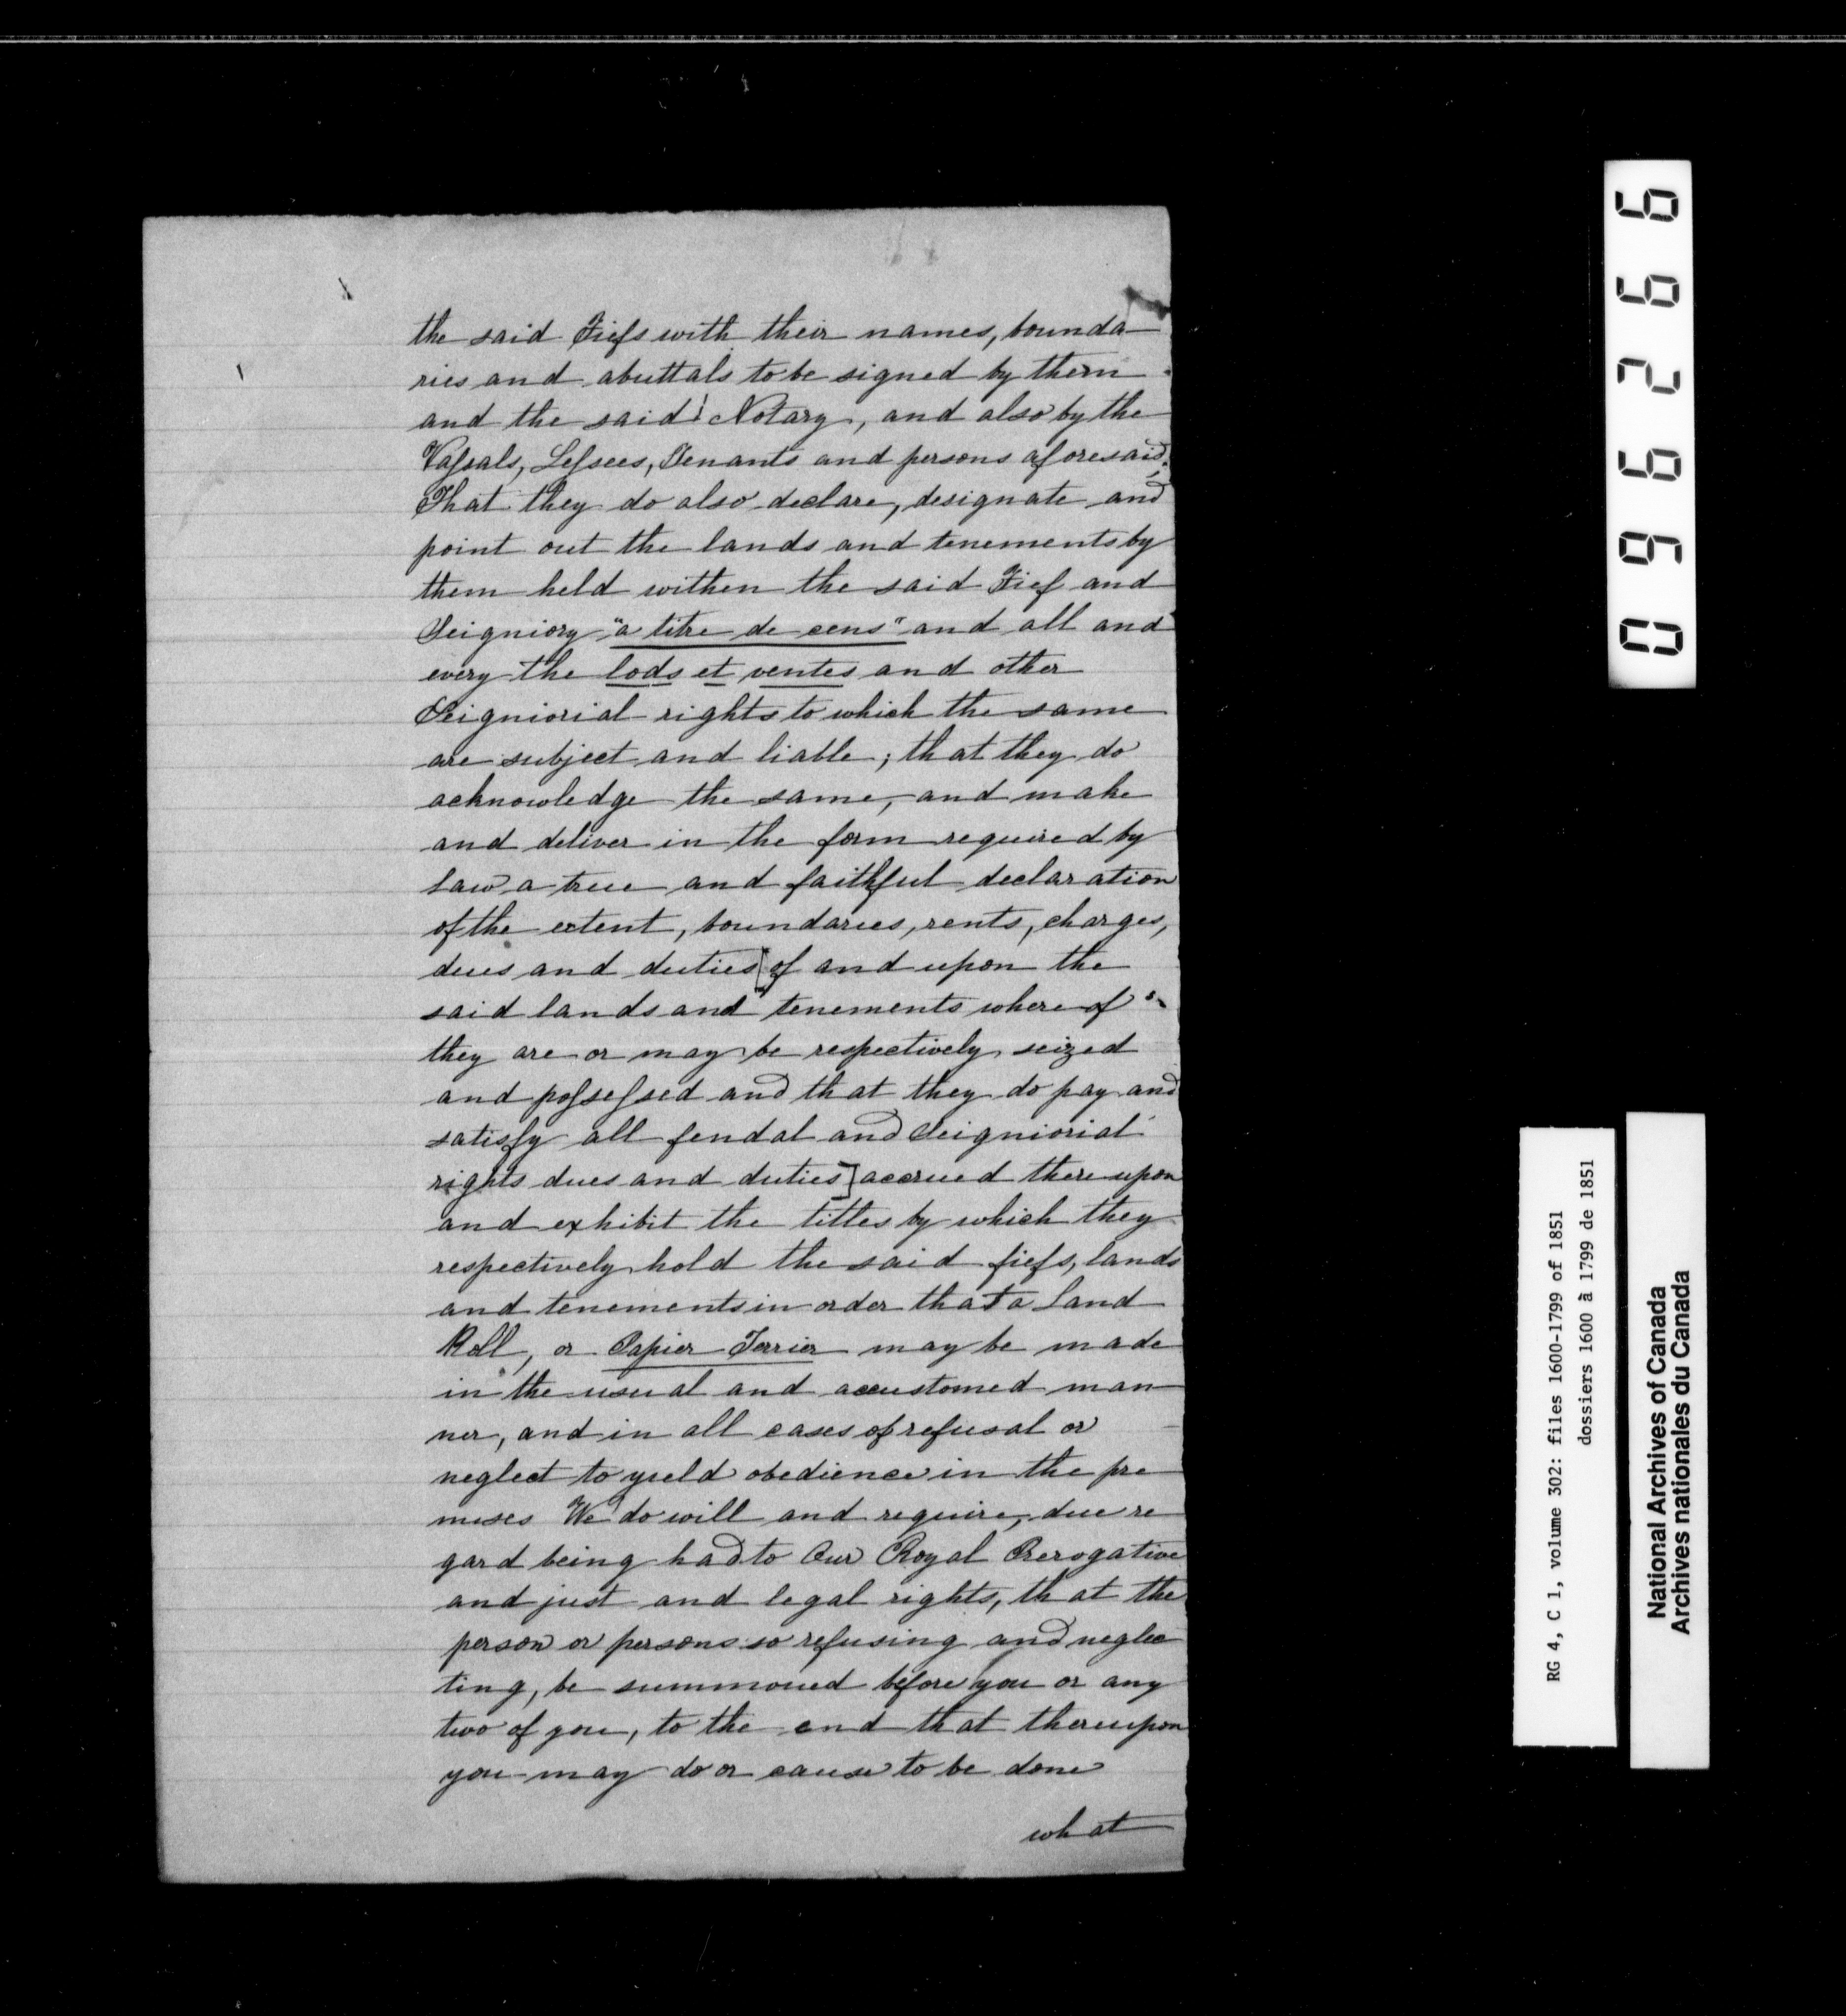 the said Fiefs with their names, bounda
ries and abuttals to be signed by them
and the said Notary, and also by the
Vassals, Lessees, Tenants and persons aforesaid;
That they do also declare, designate and
point out the lands and tenements by
them held within the said Fief and
Seigniory "a titre de cens" and all and
every the lods et ventes and other
Seigniorial rights to which the same
are subject and liable; that they do
acknowledge the same, and make
and deliver in the form required by
law a true and faithful declaration
of the extent, boundaries, rents, charges,
dues and duties [of and upon the
said lands and tenements whereof
they are or may be respectively seized
and possessed and that they do pay and
satisfy all feudal and Seigniorial
rights dues and duties] accrued thereupon
and exhibit the titles by which they
respectively hold the said fiefs, lands
and tenements in order that a Land
Roll, or Papier Terrier may be made
in the usual and accustomed man
ner, and in all cases of refusal or
neglect to yield obedience in the pre
mises We do will and require, due re
gard being had to Our Royal Prerogative
and just and legal rights, that the
person or persons so refusing and neglec
ting, be summoned before you or any
two of you, to the end that thereupon
you may do or cause to be done
what
096266
RG 4, C 1, volume 302: files 1600-1799 of 1851
dossiers 1600 à 1799 de 1851
National Archives of Canada
Archives nationales du Canada